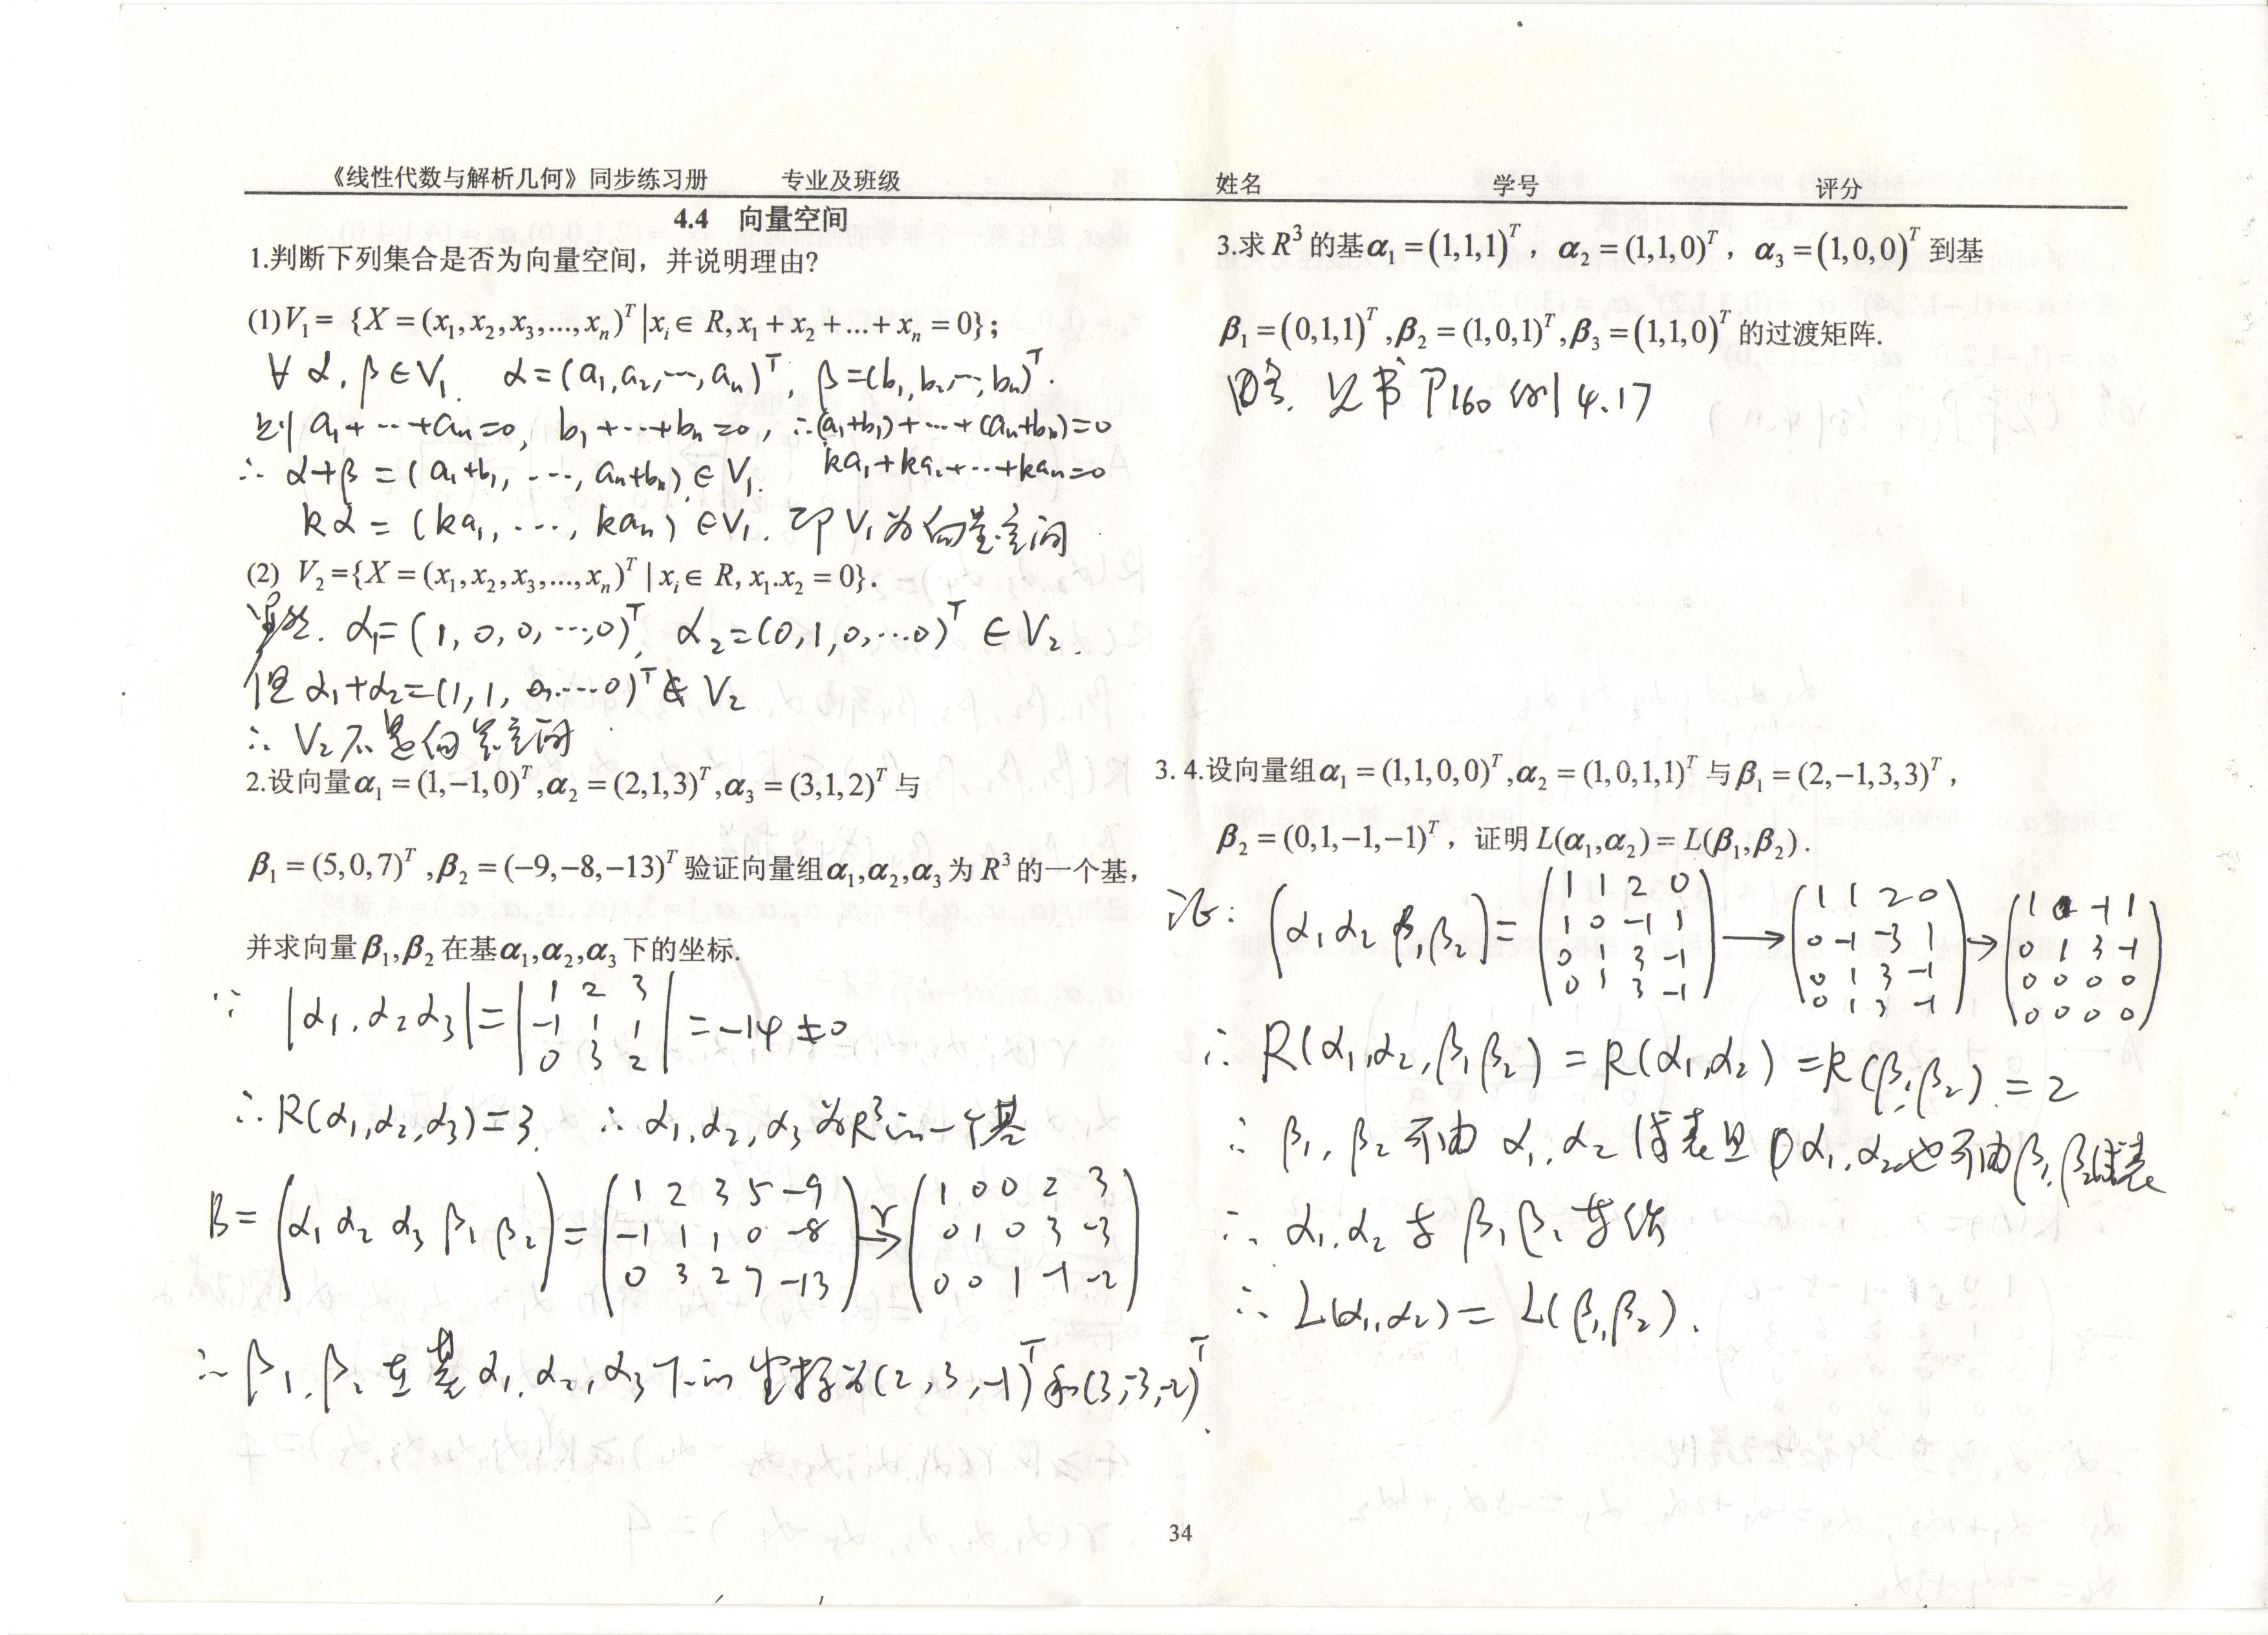 《线性代数与解析几何》同步练习册 专业及班级 姓名 学号 评分
4.4 向量空间
1.判断下列集合是否为向量空间，并说明理由？
(1) V₁ = {X = (x₁,x₂,x₃,...,xₙ)ᵀ |xᵢ∈ R, x₁ + x₂ + ... + xₙ = 0}；
∀ α, β ∈ V₁. α = (a₁, a₂, ⋯, aₙ)ᵀ, β = (b₁, b₂, ⋯, bₙ)ᵀ.
则 a₁ + ⋯ + aₙ = 0, b₁ + ⋯ + bₙ = 0, ∴ (a₁+b₁) + ⋯ + (aₙ+bₙ) = 0
ka₁ + ka₂ + ⋯ + kaₙ = 0
∴ α+β = (a₁+b₁, ⋯, aₙ+bₙ) ∈ V₁.
kα = (ka₁, ⋯, kaₙ) ∈ V₁. 即 V₁ 为向量空间
(2) V₂ = {X = (x₁,x₂,x₃,...,xₙ)ᵀ | xᵢ∈ R, x₁.x₂ = 0}.
显然. α₁ = (1, 0, 0, ⋯, 0)ᵀ, α₂ = (0, 1, 0, ⋯ 0)ᵀ ∈ V₂.
但 α₁+α₂ = (1, 1, 0, ⋯ 0)ᵀ ∉ V₂
∴ V₂ 不是向量空间
2.设向量α₁ = (1,−1,0)ᵀ,α₂ = (2,1,3)ᵀ,α₃ = (3,1,2)ᵀ 与
β₁ = (5,0,7)ᵀ ,β₂ = (−9,−8,−13)ᵀ 验证向量组α₁,α₂,α₃ 为 R³ 的一个基，
并求向量β₁,β₂ 在基α₁,α₂,α₃ 下的坐标.
∵ |α₁, α₂ α₃| = | 1 2 3 |
| −1 1 1 | = −14 ≠ 0
| 0 3 2 |
∴ R(α₁,α₂,α₃) = 3. ∴ α₁, α₂, α₃ 为 R³ 的一个基
( 1 2 3 5 −9 ) ( 1 0 0 2 3 )
B = (α₁ α₂ α₃ β₁ β₂) = ( −1 1 1 0 −8 ) r→ ( 0 1 0 3 −3 )
( 0 3 2 7 −13 ) ( 0 0 1 −1 −2 )
∴ β₁, β₂ 在基 α₁, α₂, α₃ 下的坐标为 (2, 3, −1)ᵀ 和 (3, −3, −2)ᵀ.
3.求 R³ 的基α₁ = (1,1,1)ᵀ ，α₂ = (1,1,0)ᵀ ，α₃ = (1,0,0)ᵀ 到基
β₁ = (0,1,1)ᵀ ,β₂ = (1,0,1)ᵀ,β₃ = (1,1,0)ᵀ 的过渡矩阵.
略. 见书 P160 例 4.17
3. 4.设向量组α₁ = (1,1,0,0)ᵀ,α₂ = (1,0,1,1)ᵀ 与β₁ = (2,−1,3,3)ᵀ，
β₂ = (0,1,−1,−1)ᵀ，证明 L(α₁,α₂) = L(β₁,β₂) .
( 1 1 2 0 ) ( 1 1 2 0 ) ( 1 0 −1 1 )
证: (α₁ α₂ β₁ β₂) = ( 1 0 −1 1 ) → ( 0 −1 −3 1 ) → ( 0 1 3 −1 )
( 0 1 3 −1 ) ( 0 1 3 −1 ) ( 0 0 0 0 )
( 0 1 3 −1 ) ( 0 1 3 −1 ) ( 0 0 0 0 )
∴ R(α₁,α₂,β₁,β₂) = R(α₁,α₂) = R(β₁,β₂) = 2
∴ β₁, β₂ 可由 α₁, α₂ 线表且 α₁, α₂ 也可由 β₁, β₂ 线表
∴ α₁, α₂ 与 β₁ β₂ 等价
∴ L(α₁,α₂) = L(β₁,β₂).
34